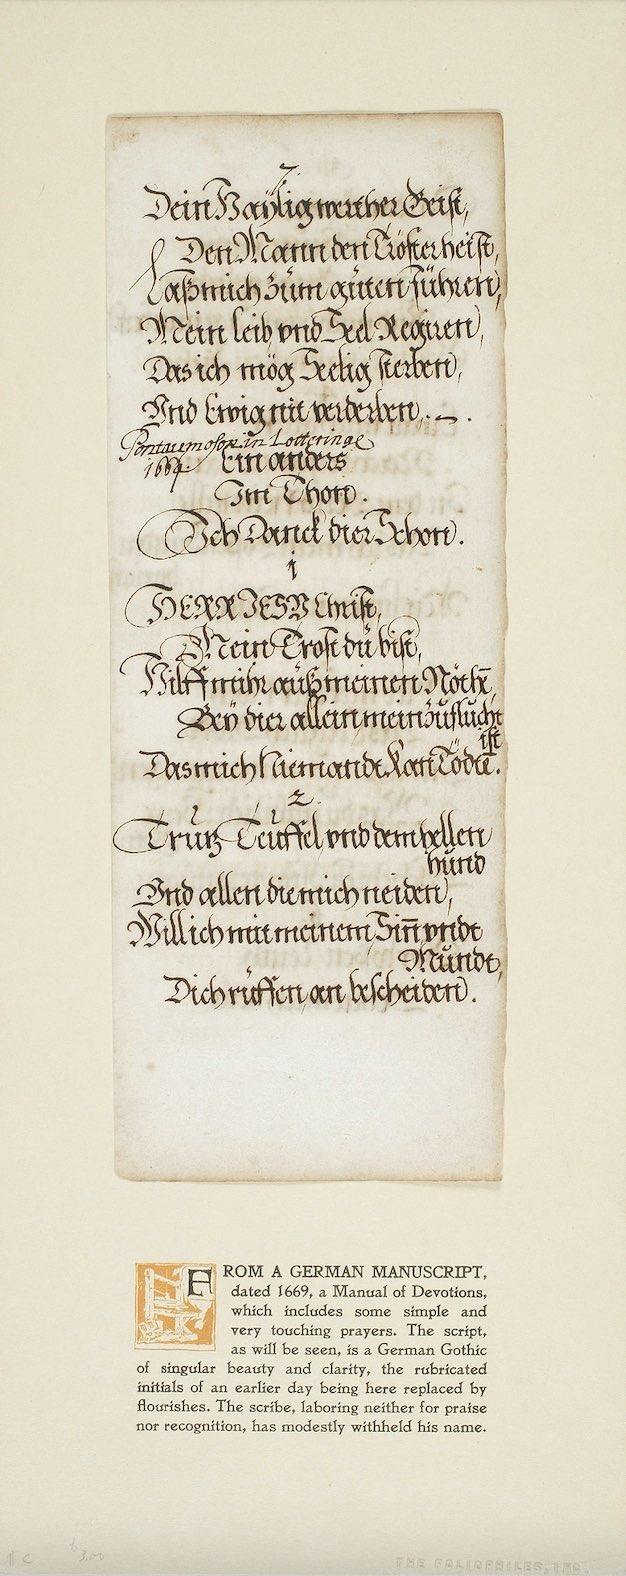 7.
Dein Haÿlig werther Geist,
Den Mann den Tröster heist,
Laß mich zům gůten führen,
Mein leib vnd Seel Regiren,
Das ich mög Seelig sterben,
Vnd Ewig nit verderben,.
in Lotteringe
1664. Ein anders
Im Thon.
Ich Danck dier Schon.
1
HERR JESV Christ,
Mein Trost du bist,
Hilff mihr aůß meinen Nöthē,
Beÿ dier allein mein zůflůcht
ist
Das mich Niemandt kan Tödtē.
2.
Trůtz Teůffel, vnd dem hellen
hůnd
Vnd allen die mich neiden,
Will ich mit meinem Siñ vndt
Můndt,
Dich růffen an bescheiden.
FROM A GERMAN MANUSCRIPT,
dated 1669, a Manual of Devotions,
which includes some simple and
very touching prayers. The script,
as will be seen, is a German Gothic
of singular beauty and clarity, the rubricated
initials of an earlier day being here replaced by
flourishes. The scribe, laboring neither for praise
nor recognition, has modestly withheld his name.
THE FOLIOPHILES, INC.